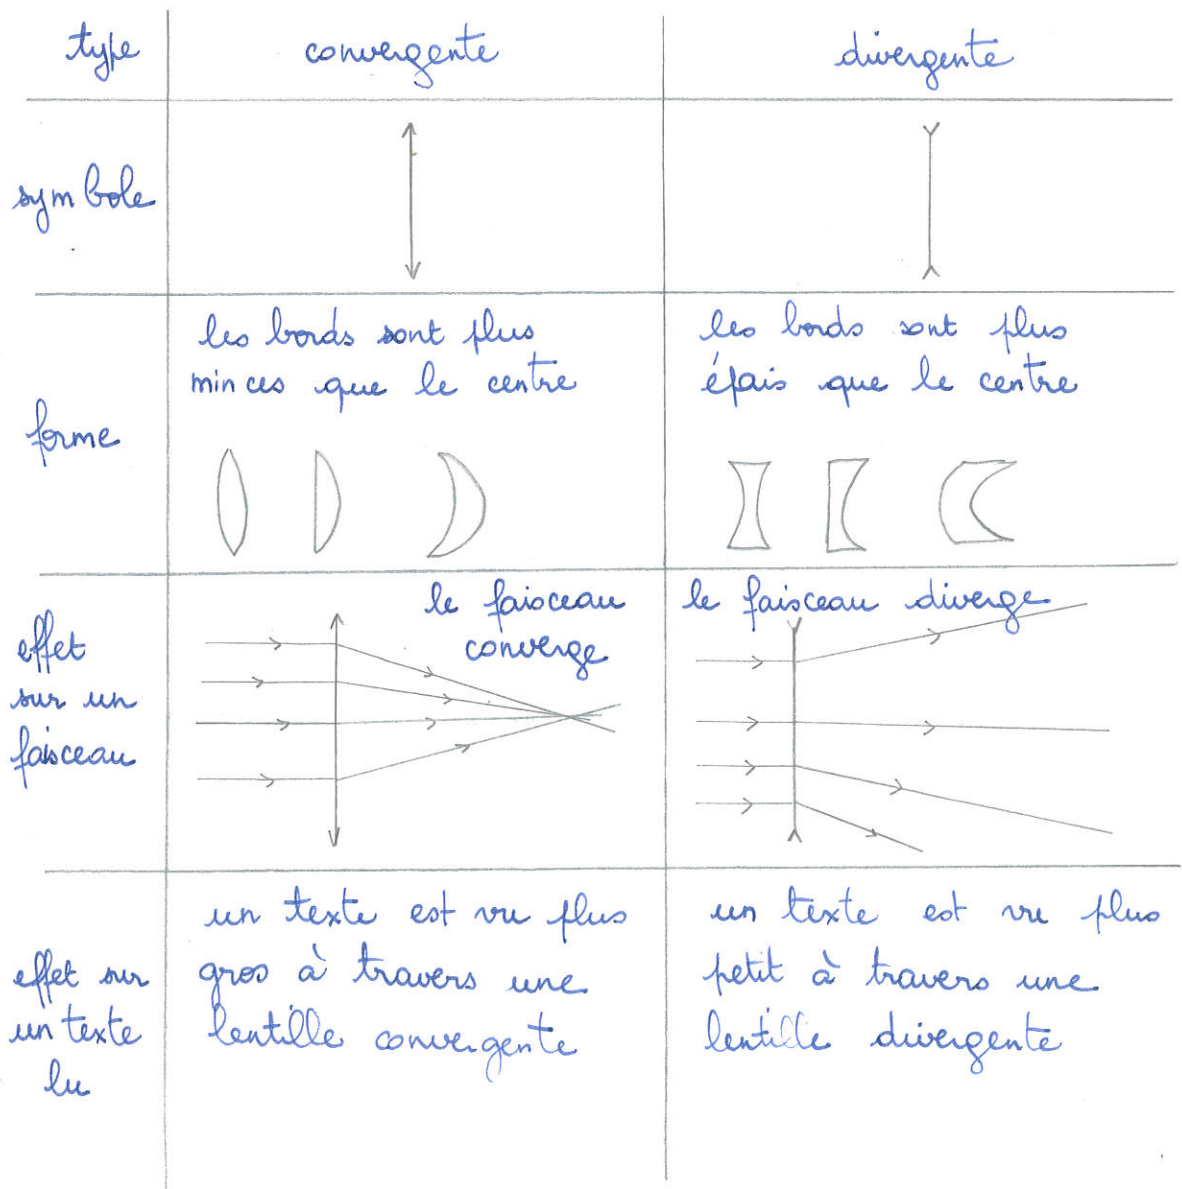 type convergente divergente
symbole
les bords sont plus
minces que le centre
les bords sont plus
épais que le centre
forme
effet
sur un
faisceau
le faisceau
converge
le faisceau diverge
effet sur
un texte
lu
un texte est vu plus
gros à travers une
lentille convergente
un texte est vu plus
petit à travers une
lentille divergente